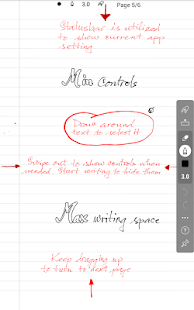 3.0
Page 5/6
Statusbar is utilized
to show current app
setting
Min Controls
Draw around
text to select it
Swipe out to show controls when
needed. Start writing to hide them
3.0
Max writing space
Keep dragging up
to turn to next page